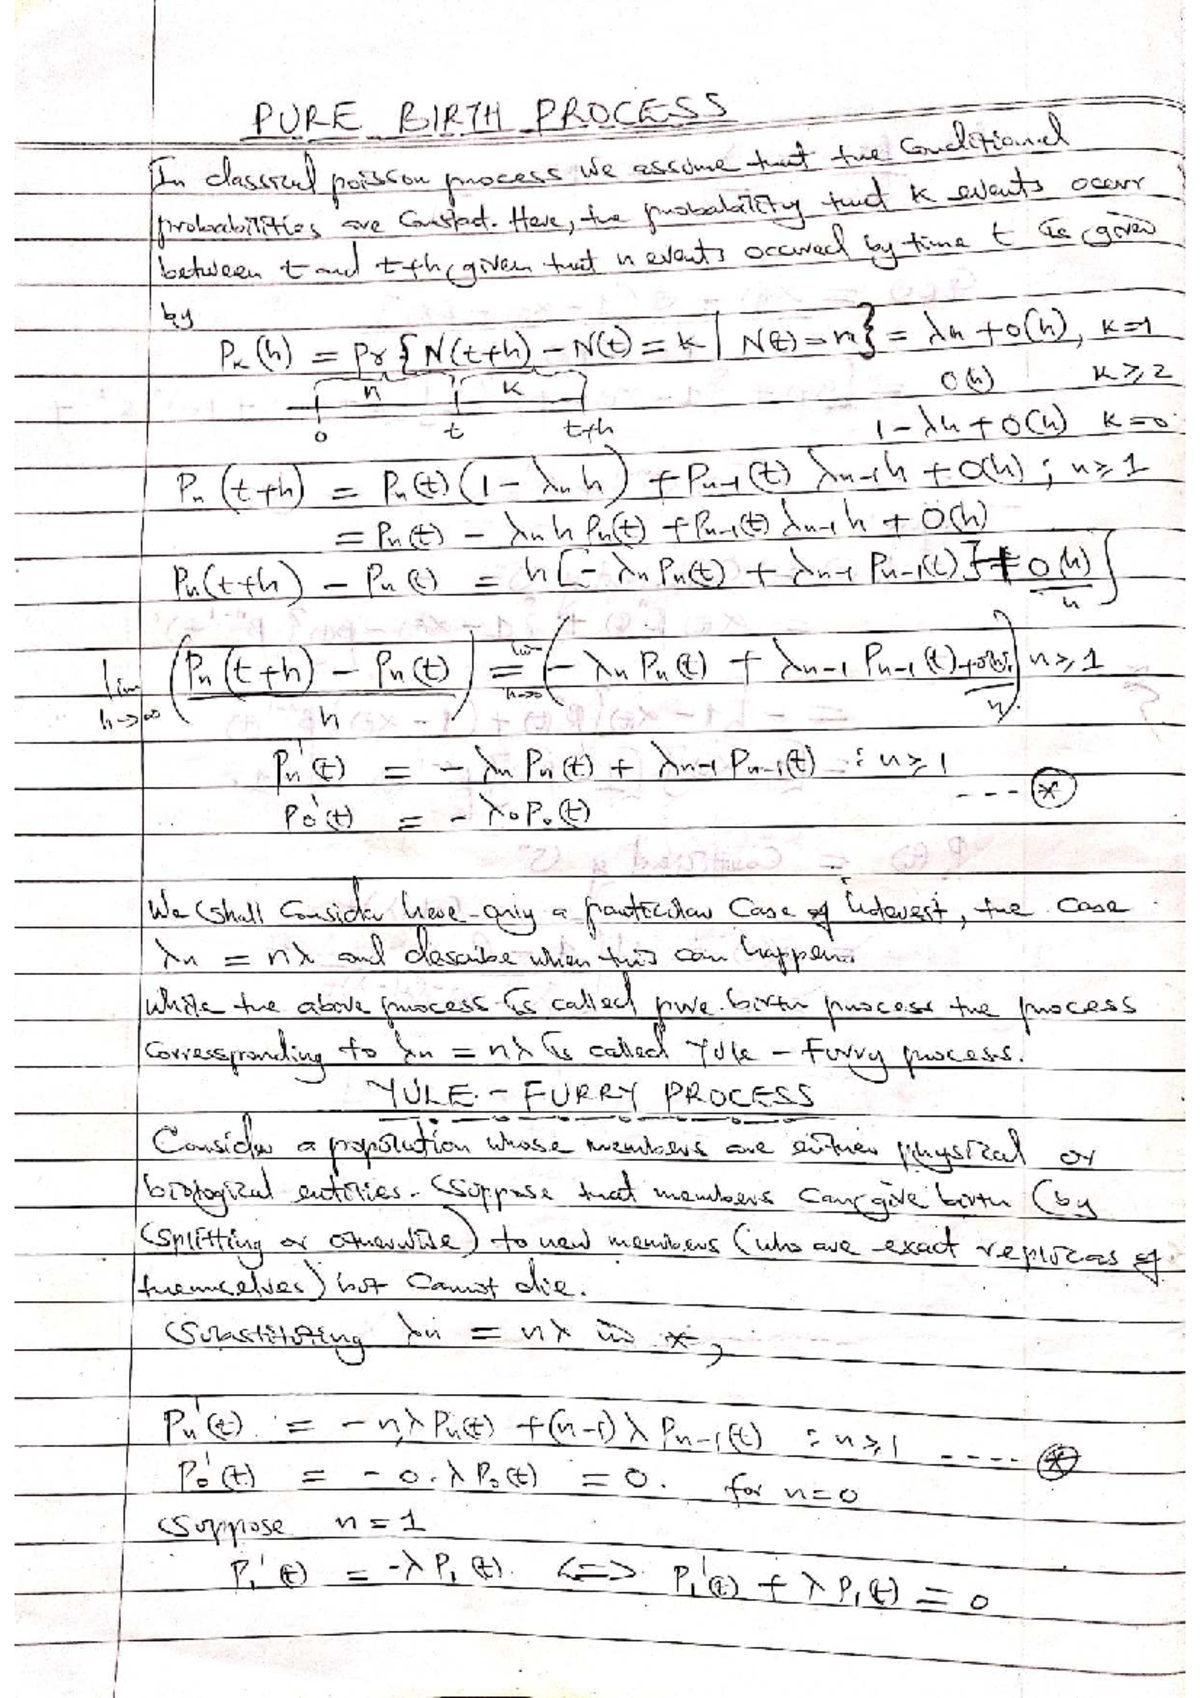 PURE BIRTH PROCESS
In classical poisson process we assume that the conditional
probabilities are constant. Here, the probability that k events occur
between t and t+h, given that n events occured by time t is given
by
Pₖ(h) = Pr{N(t+h) - N(t) = k | N(t) = n} = λn + 0(h), k=1
n k 0(h) k ≥ 2
0 t t+h 1 - λh + 0(h) k=0
Pₙ(t+h) = Pₙ(t)(1 - λₙh) + Pₙ₋₁(t) λₙ₋₁h + 0(h) ; n ≥ 1
= Pₙ(t) - λₙh Pₙ(t) + Pₙ₋₁(t) λₙ₋₁h + 0(h)
Pₙ(t+h) - Pₙ(t) = h[-λₙPₙ(t) + λₙ₋₁ Pₙ₋₁(t)} + 0(h)/h}
lim h→∞ (Pₙ(t+h) - Pₙ(t) / h) = lim h→∞ (-λₙ Pₙ(t) + λₙ₋₁ Pₙ₋₁(t) + 0(h)/h) n ≥ 1
Pₙ'(t) = -λₙ Pₙ(t) + λₙ₋₁ Pₙ₋₁(t) : n ≥ 1
P₀'(t) = -λ₀P₀(t) --- (*)
We shall consider here only a particular case of interest, the case
λn = nλ and describe when this can happen.
While the above process is called pure birth process the process
corresponding to λn = nλ is called Yule - Furry process.
YULE - FURRY PROCESS
Consider a population whose members are either physical or
biological entities. Suppose that members can give birth (by
splitting or otherwise) to new members (who are exact replicas of
themselves) but cannot die.
Substituting λn = nλ in *,
Pₙ'(t) = -nλPₙ(t) + (n-1)λ Pₙ₋₁(t) : n ≥ 1 ---- (*)
P₀'(t) = -0.λP₀(t) = 0. for n=0
Suppose n = 1
P₁'(t) = -λP₁(t). <=> P₁'(t) + λP₁(t) = 0